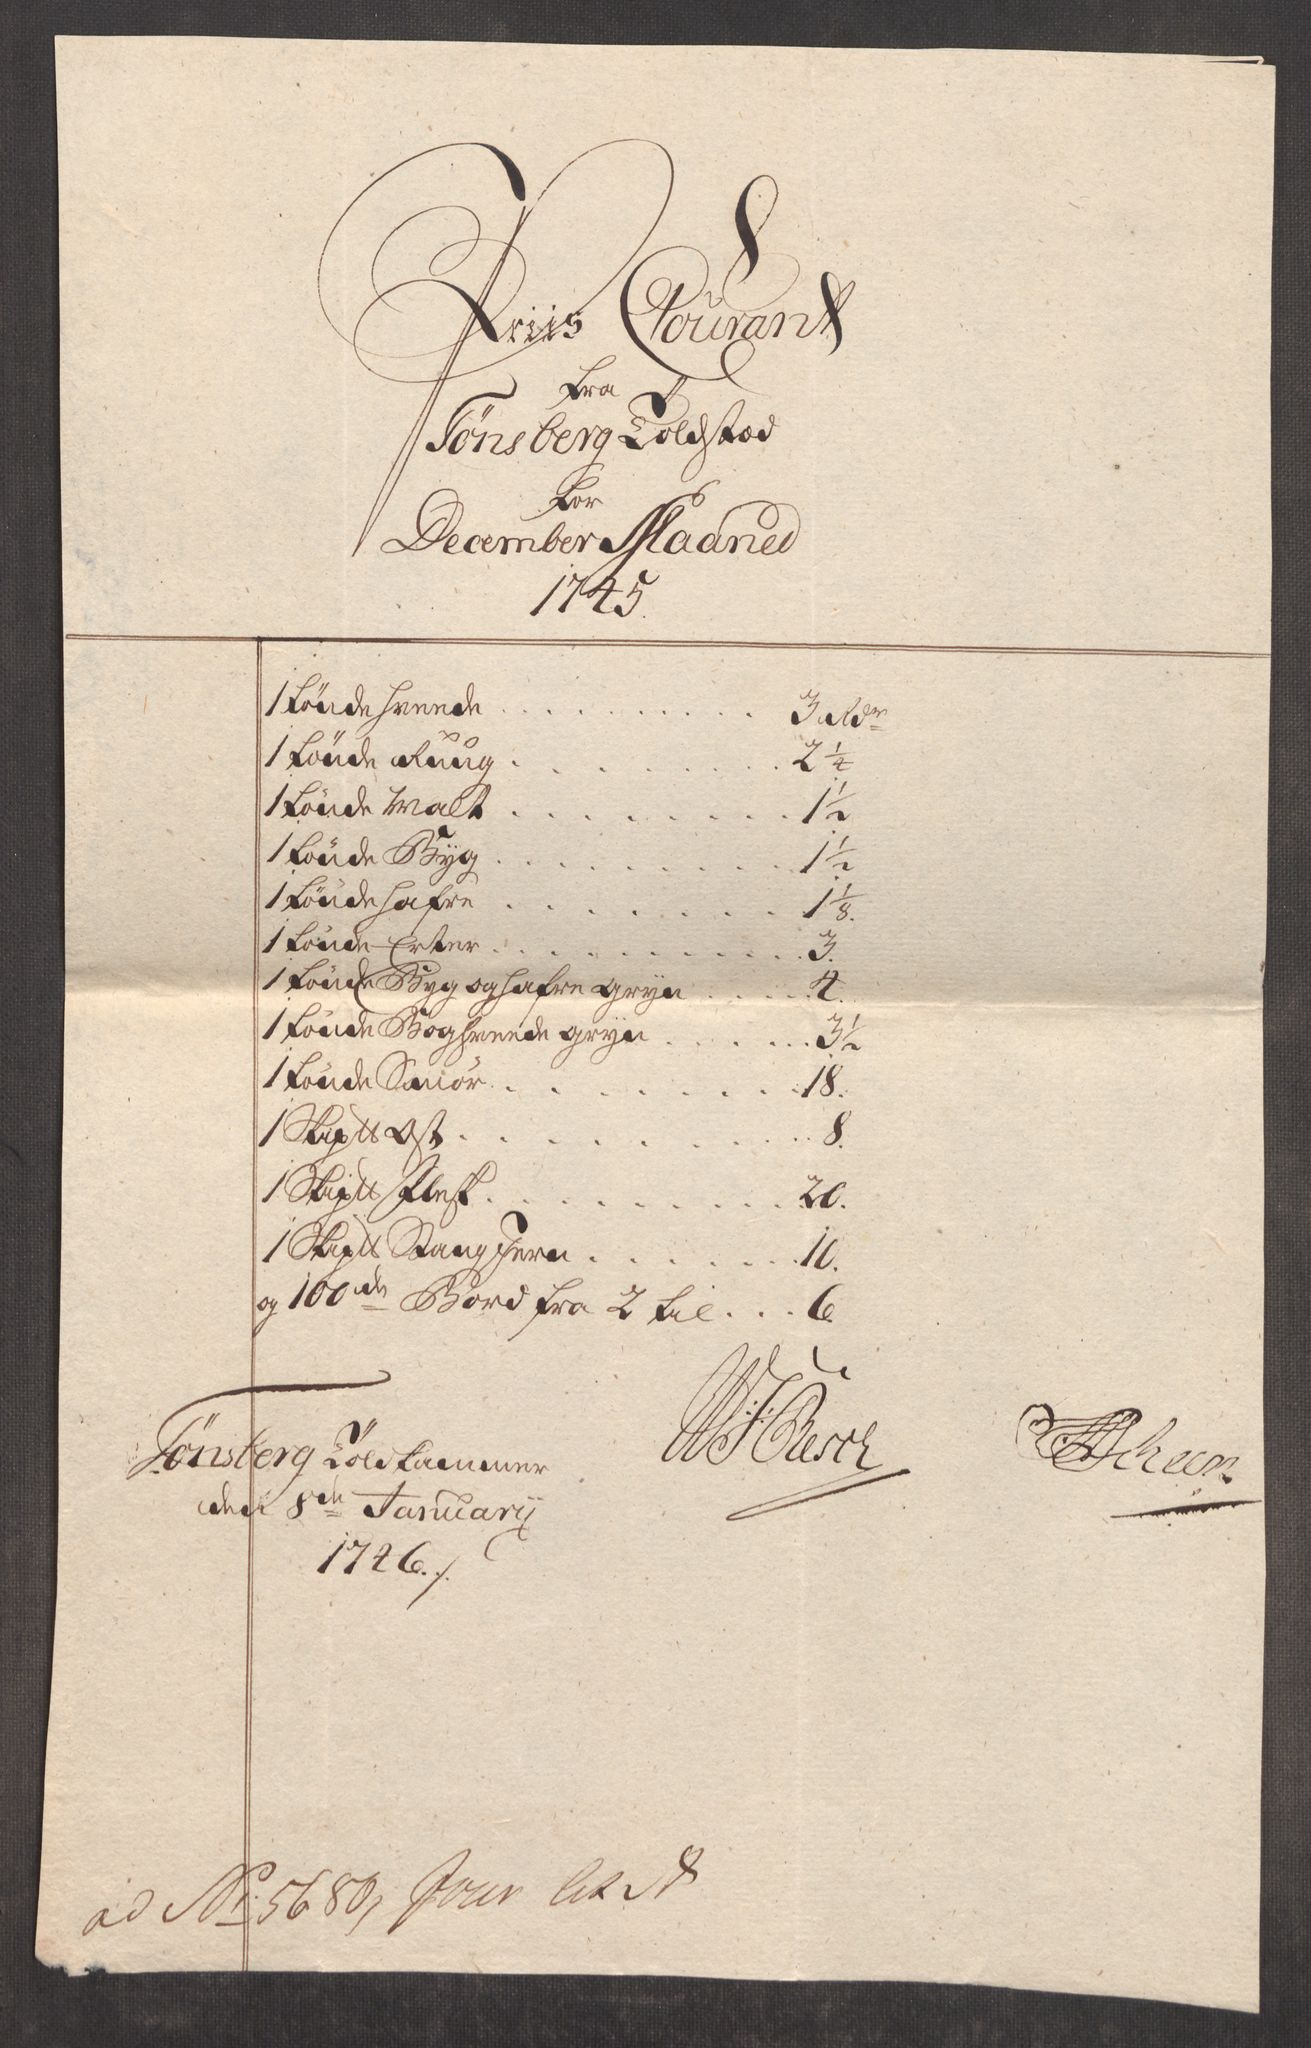 Priis Courant
fra
Tønsberg Toldstæd
for
December Maaned
1745.
1 tønde hveede . . . . . . . . . . 3 Rdr
1 tønde Ruug . . . . . . . . 2 1/4
1 tønde Malt . . . . . . . . 1 1/2
1 tønde Byg . . . . . . . . . 1 1/2
1 tønde hafre . . . . . . . 1 1/8.
1 tønde Erter . . . . . . . . . . . 3.
1 tønde Byg og hafre gryn . . . . . 4.
1 tønde Boghveede gryn . . . . . . 3 1/2
1 tønde Smör . . . . . . . . 18.
1 Skip℔ Ost . . . . . . . . . . 8.
1 Skip℔ Flesk . . . . . . . . . 20.
1 Skip℔ Stang Jern . . . . . . . 10.
og 100de Bord fra 2 til . . . 6
Tønsberg Toldkammer
den 8de January
1746./.
WF Resch
Scheen
ad No 5680, Jour lit A